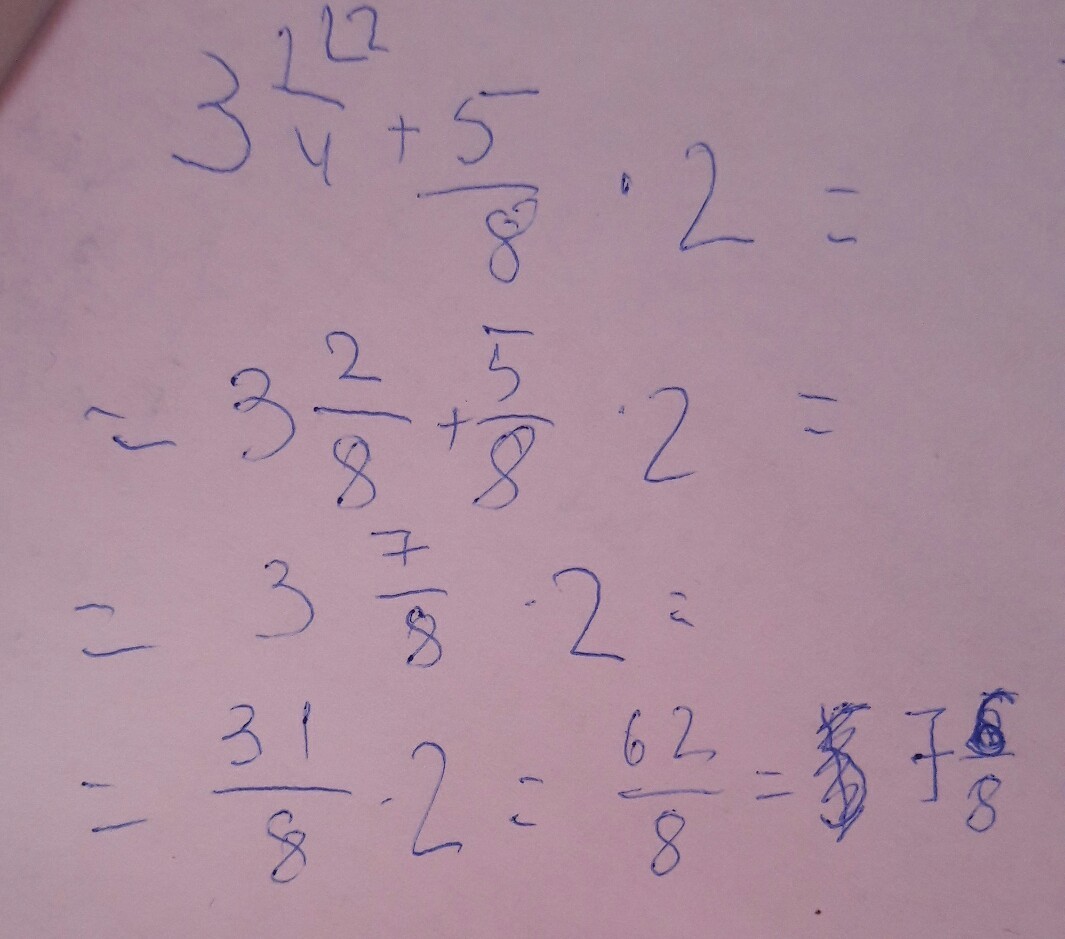 3 1/4 ⌊2 + 5/8 · 2 =
= 3 2/8 + 5/8 · 2 =
= 3 7/8 · 2 =
= 31/8 · 2 = 62/8 = 7 6/8